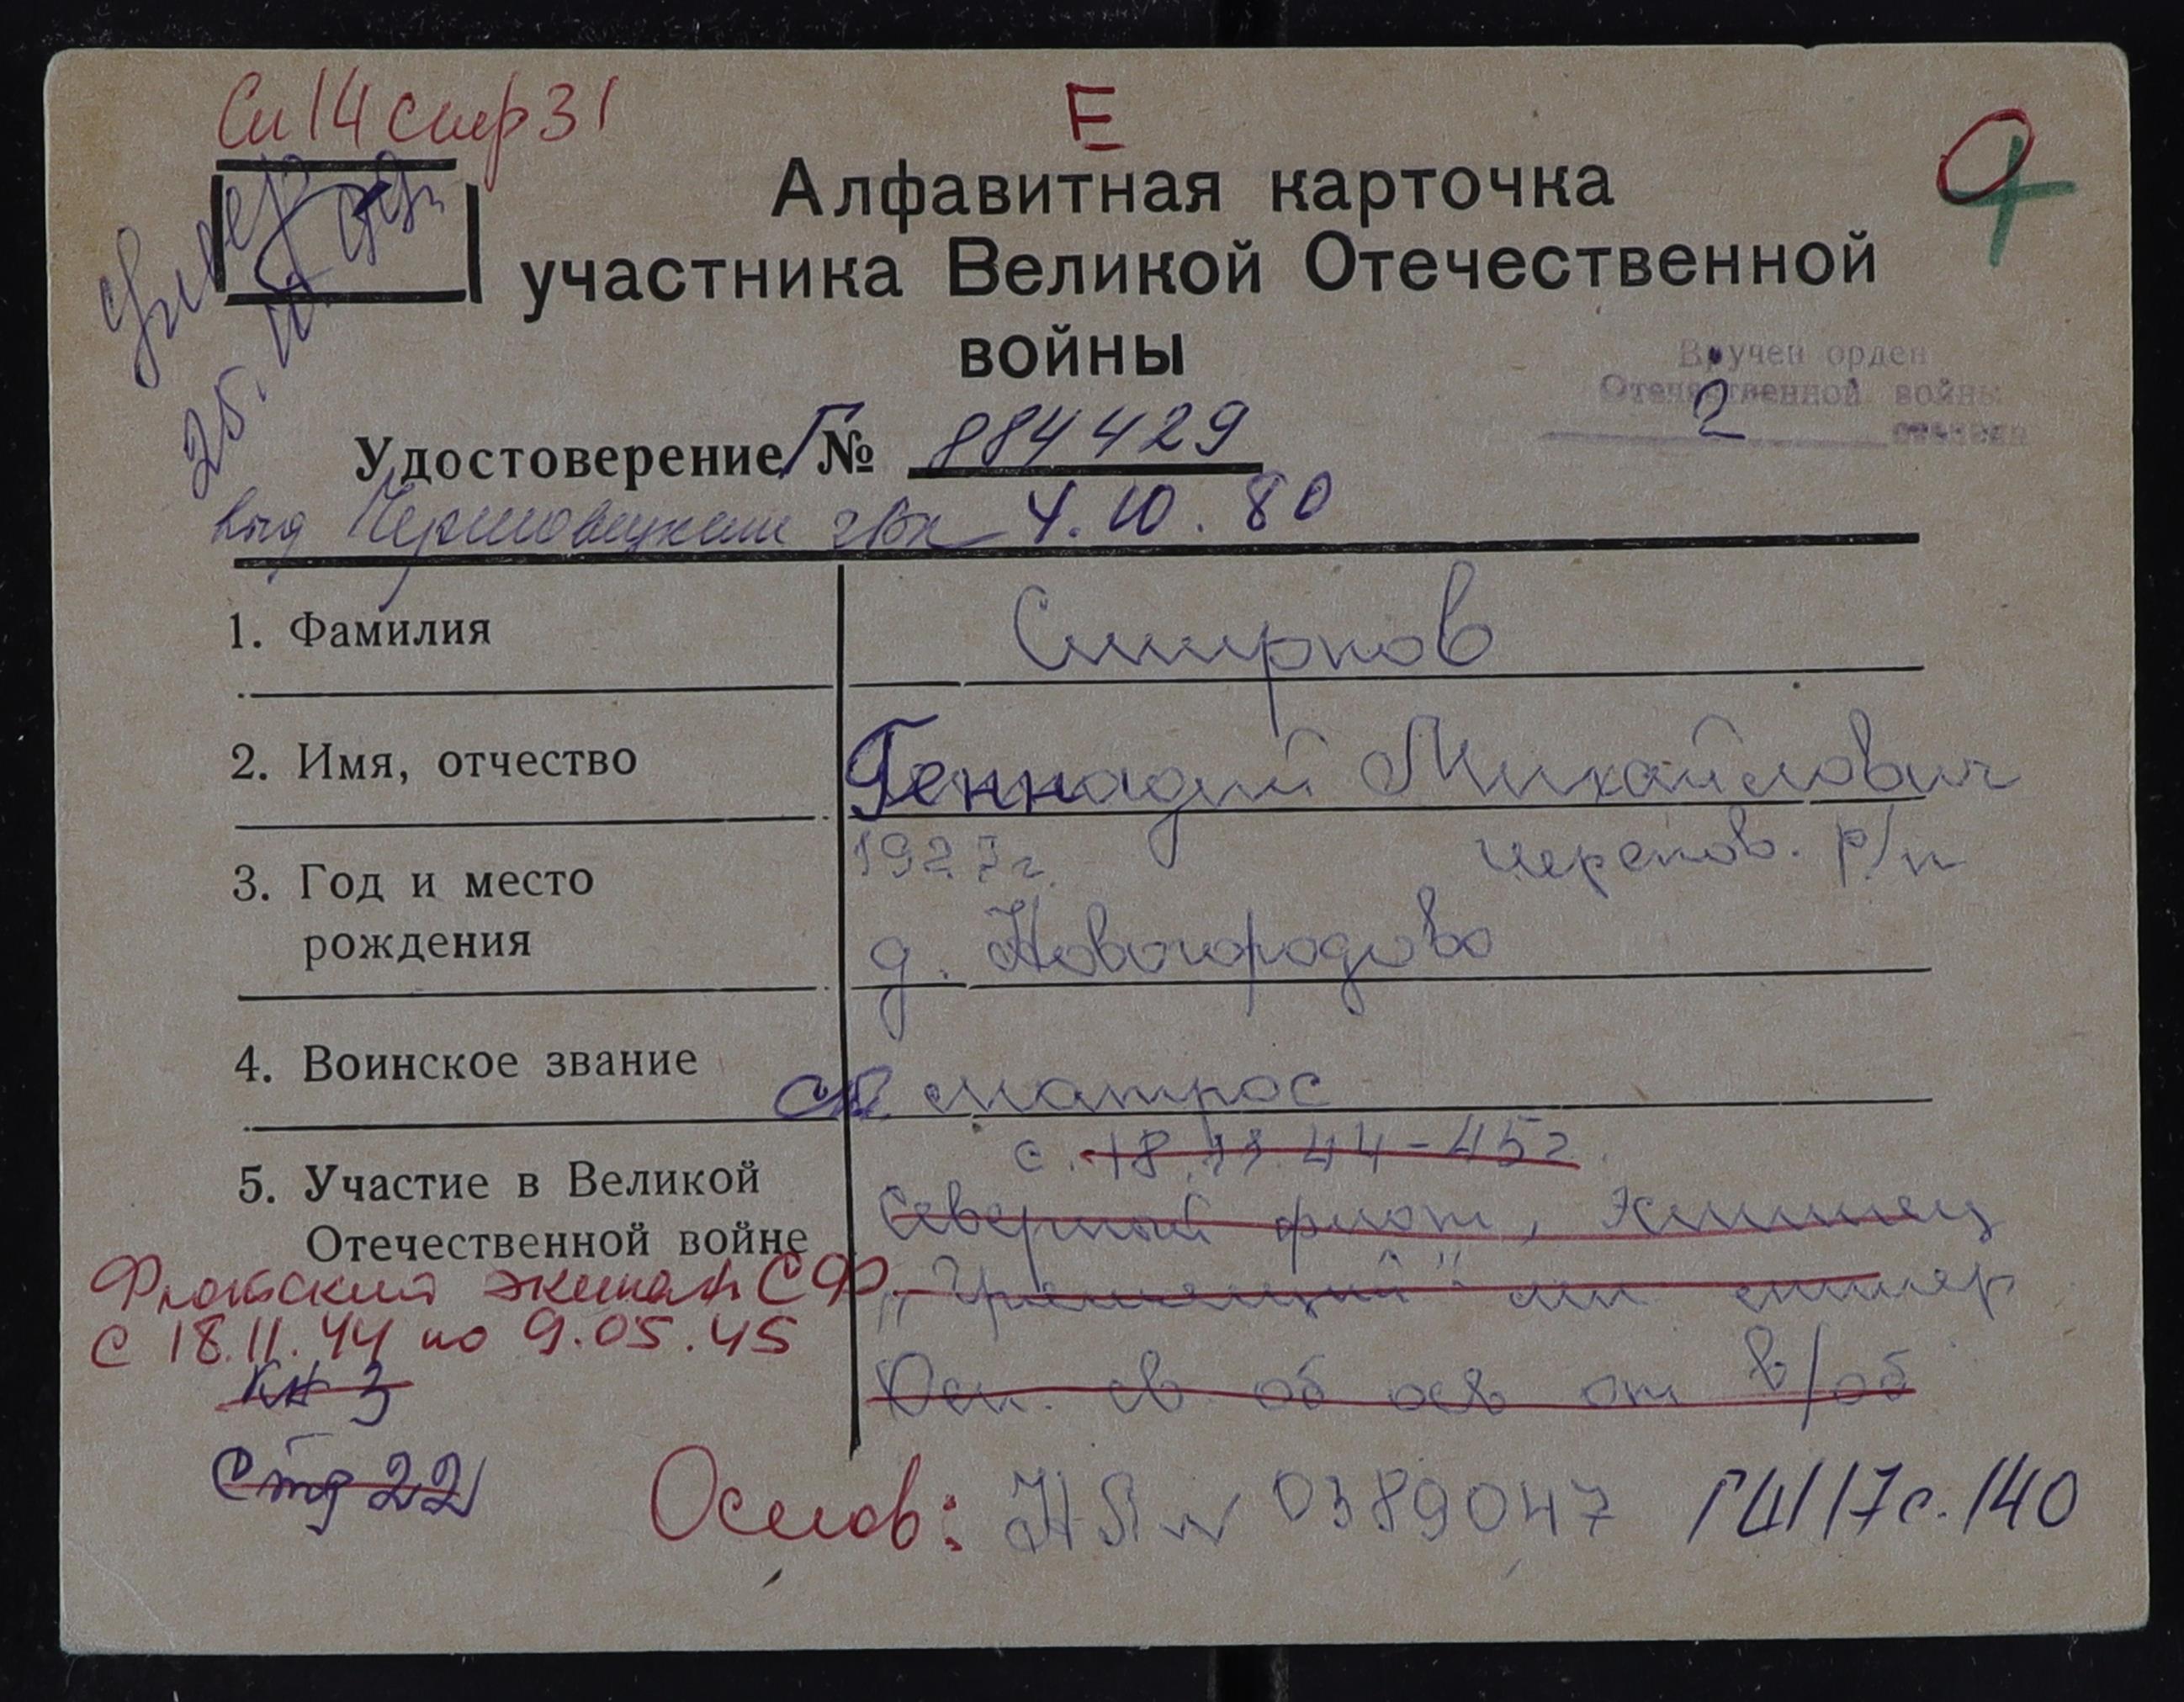 Сп 14 стр 31
Е
Алфавитная карточка
участника Великой Отечественной
войны
умер
25.
Вручен орден
Отечественной войны
2 степени
Удостоверение Г № 884429
выд Череповецким гвк 4.10.80
1. Фамилия
Смирнов
2. Имя, отчество
Геннадий Михайлович
3. Год и место
рождения
1927г. черепов. р/н
д. Новогородово
4. Воинское звание
ст матрос
5. Участие в Великой
Отечественной войне
с 18.11.44-45г.
Северный флот,
"Гремящий"
св об осв от в/об
Флотский экипаж СФ
с 18.11.44 по 9.05.45
кн 3
Стр 22
Основ: НЯ № 0389047 ГШ 17 с. 140